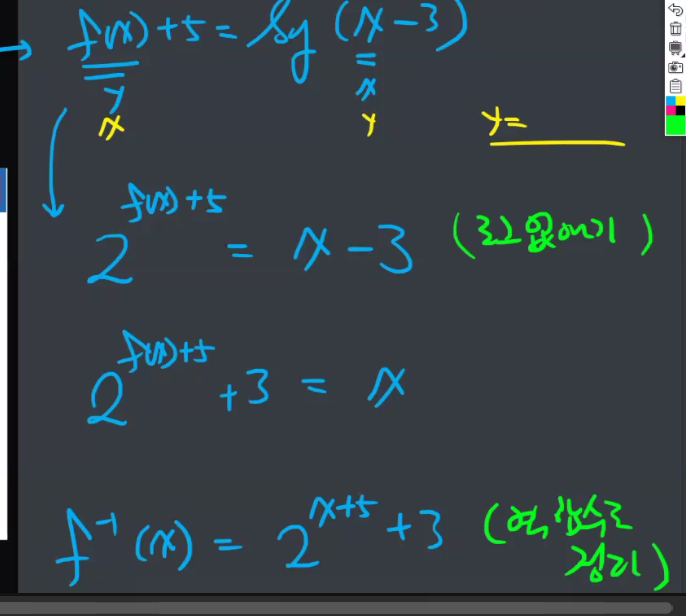 f(x)+5 = log (x-3)
y x
x y y=
2^{f(x)+5} = x-3 (로그 없애기)
2^{f(x)+5} +3 = x
f^{-1}(x) = 2^{x+5} +3 (역함수로
정리)